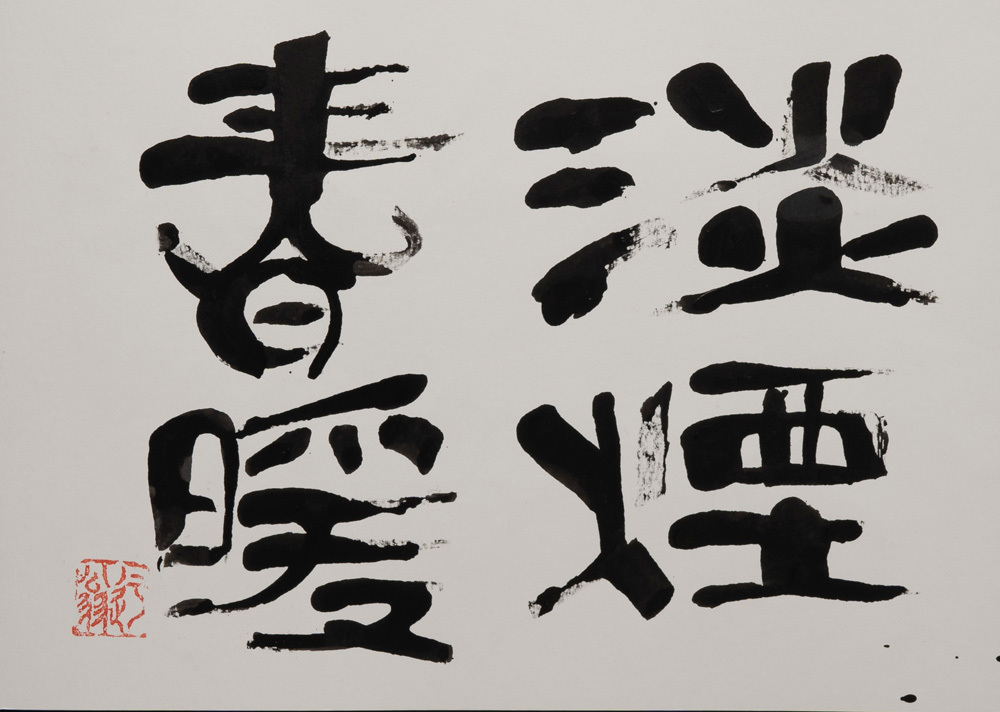 淡煙
春暖